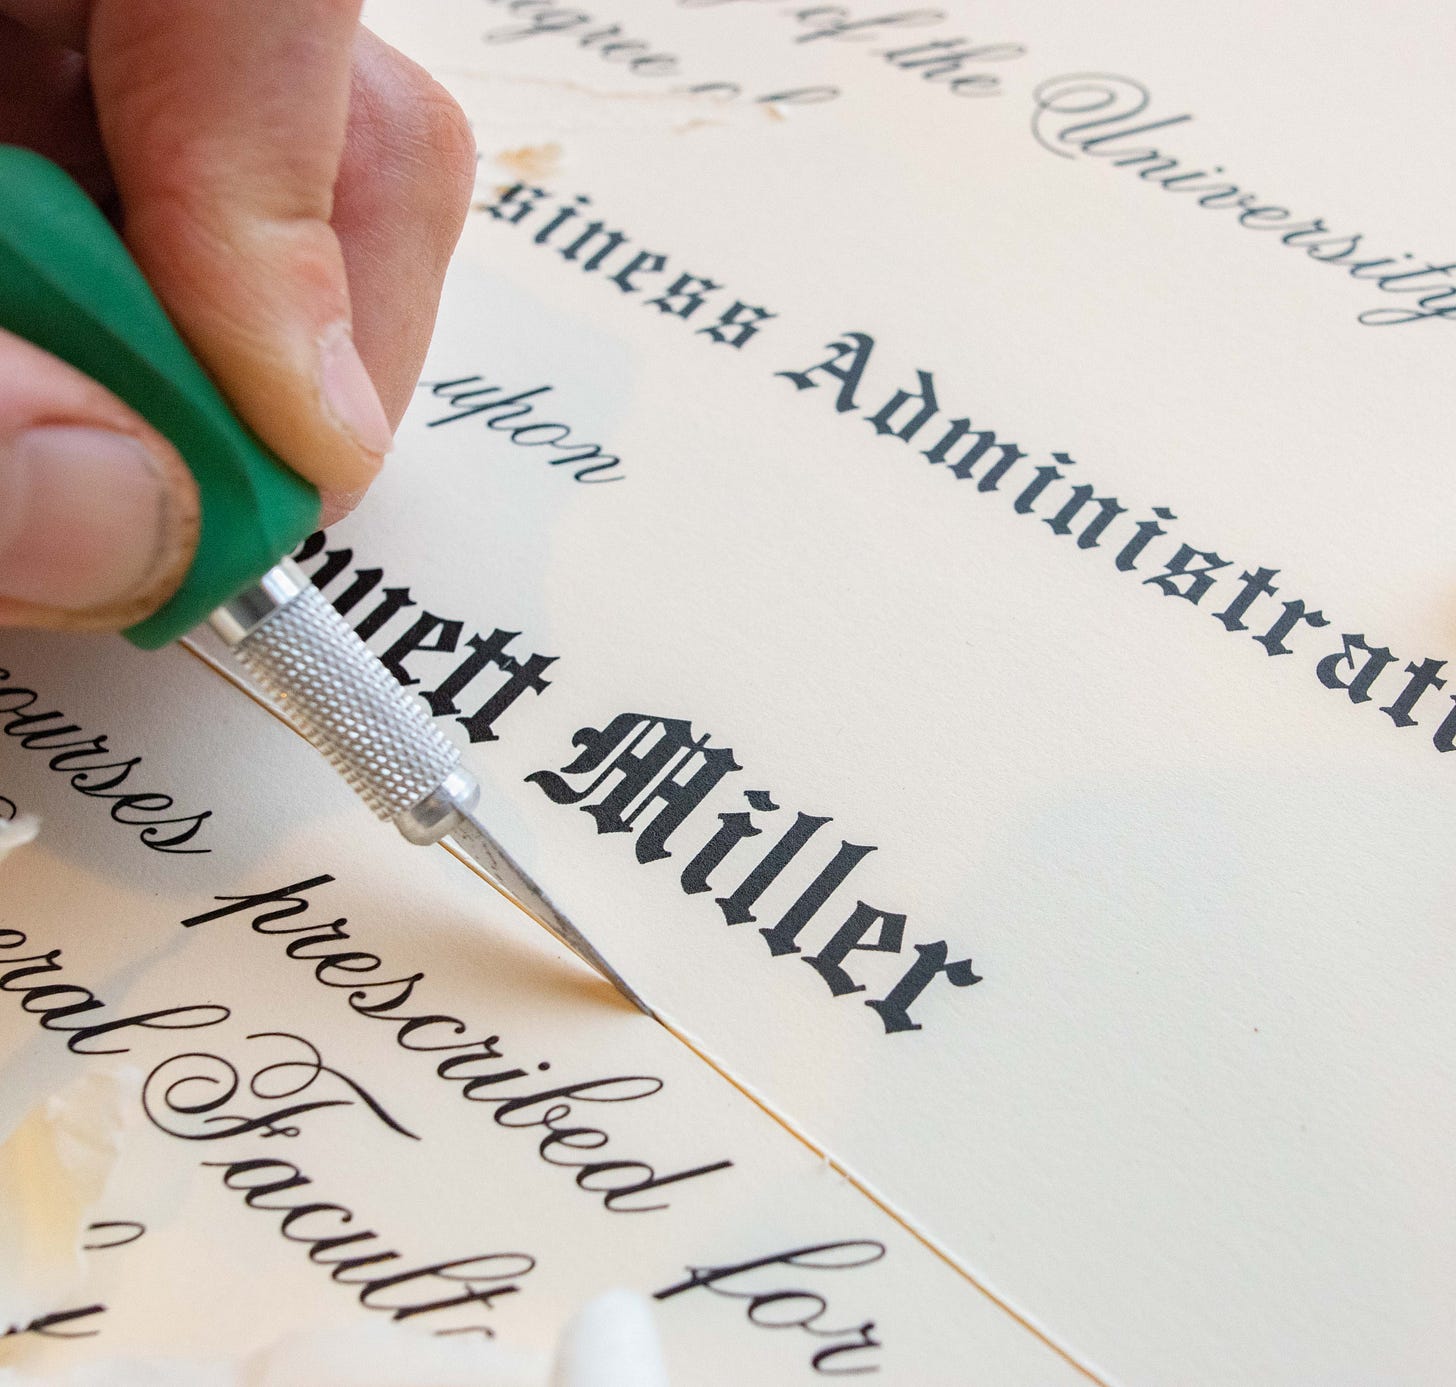 of the University
egree of
siness Administrat
upon
ett Miller
courses prescribed for
eral Facult